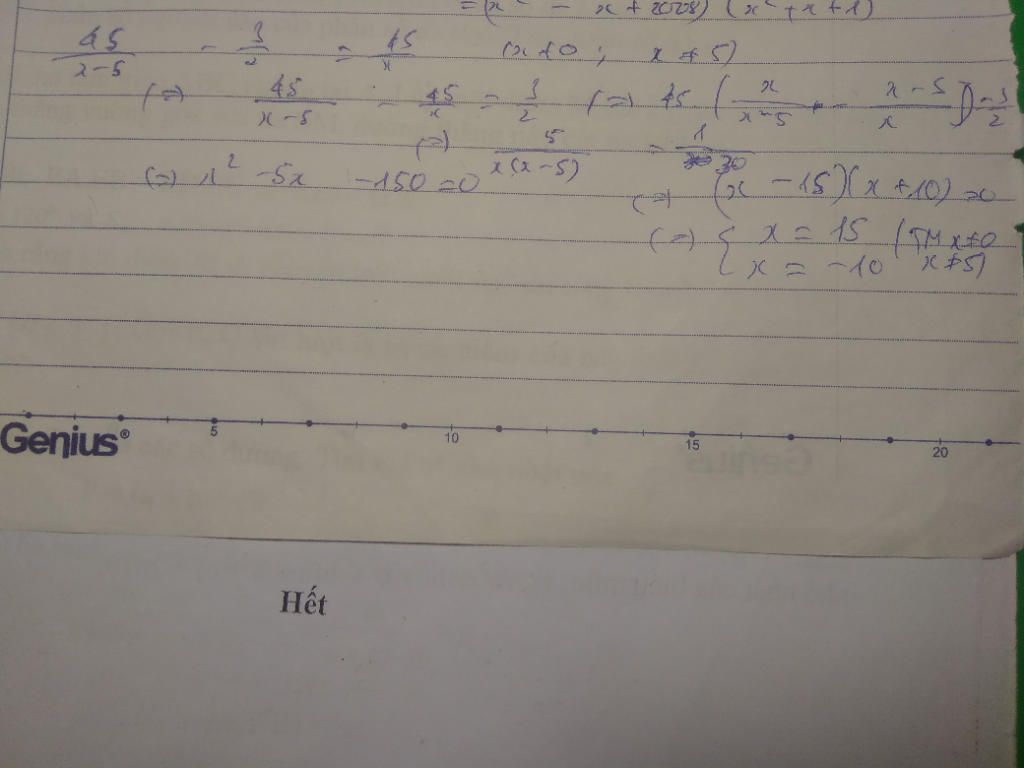 = (x² - x + 2008) (x² + x + 1)
45/(x-5) - 3/2 = 45/x (x ≠ 0 ; x ≠ 5)
(=) 45/(x-5) - 45/x = 3/2 (=) 45 (x/(x-5) - (x-5)/x) = 3/2
(=) 5/(x(x-5)) = 1/30
(=) x² - 5x - 150 = 0 (=) (x - 15)(x + 10) = 0
(=) { x = 15 (TM x ≠ 0
x = -10 x ≠ 5)
Genius® 5 10 15 20
Hết